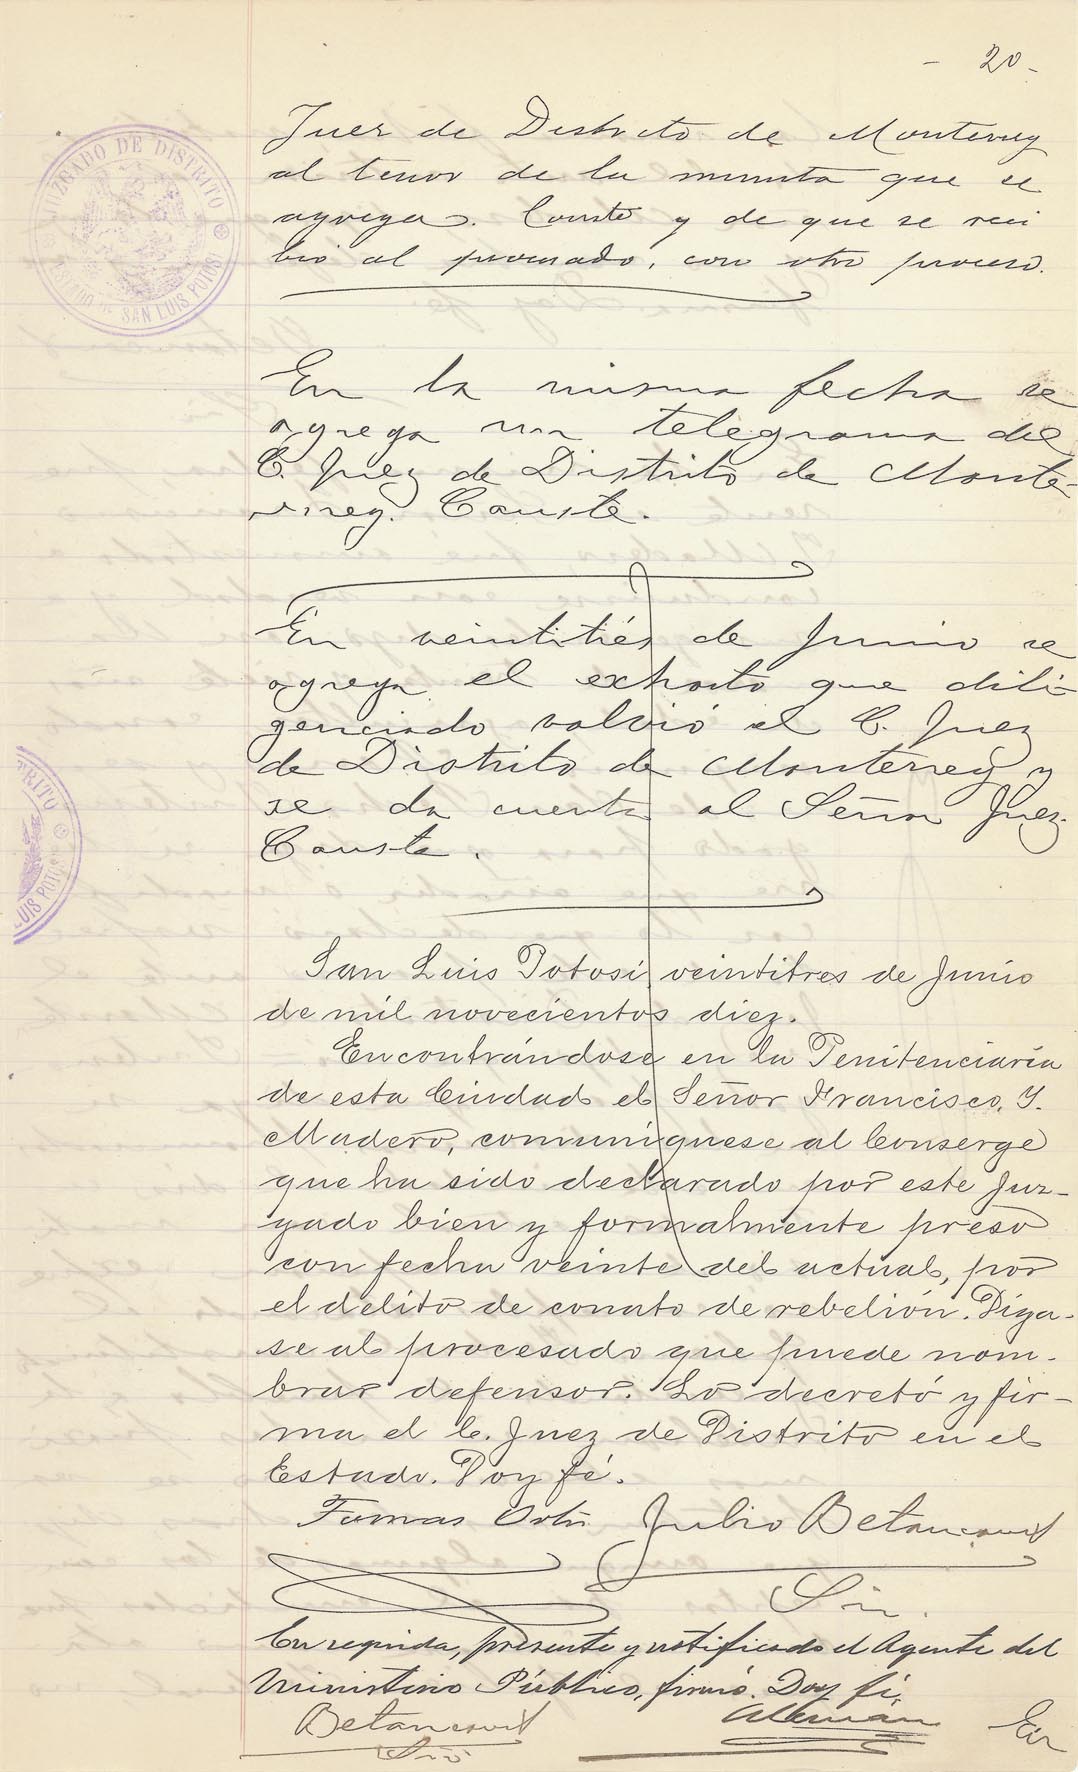 - 20 -
JUZGADO DE DISTRITO
ESTADO DE SAN LUIS POTOSI
Juez de Distrito de Monterrey
al tenor de la minuta que se
agrega. Conste y de que se reci
bió al procesado, con otro proceso.
En la misma fecha se
agrega un telegrama del
C. Juez de Distrito de Monte-
rrey. Conste.
En veintitrés de Junio se
agrega el exhorto que dili-
genciado volvió el C. Juez
de Distrito de Monterrey y
se da cuenta al Señor Juez.
Conste.
TRITO
LUIS POTOSI
San Luis Potosí, veintitres de Junio
de mil novecientos diez.
Encontrándose en la Penitenciaría
de esta Ciudad el Señor Francisco. Y.
Madero, comuníquese al Conserge
que ha sido declarado por este Juz-
gado bien y formalmente preso
con fecha veinte del actual, por
el delito de conato de rebelión. Díga-
se al procesado que puede nom-
brar defensor. Lo decretó y fir-
ma el C. Juez de Distrito en el
Estado. Doy fé.
Tomas Ortiz Julio Betancourt
Srio.
En seguida, presente y notificado el Agente del
Ministerio Público, firmó. Doy fé.
Betancourt Alemán En
Srio